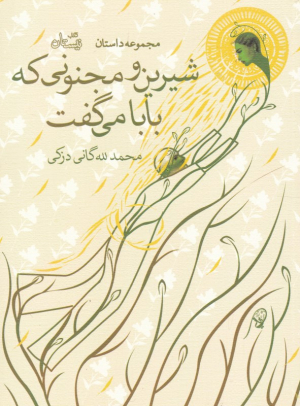 مجموعه داستان
کتاب نیستان
شیرین و مجنونی که
بابا می‌گفت
محمد لله‌گانی دزکی